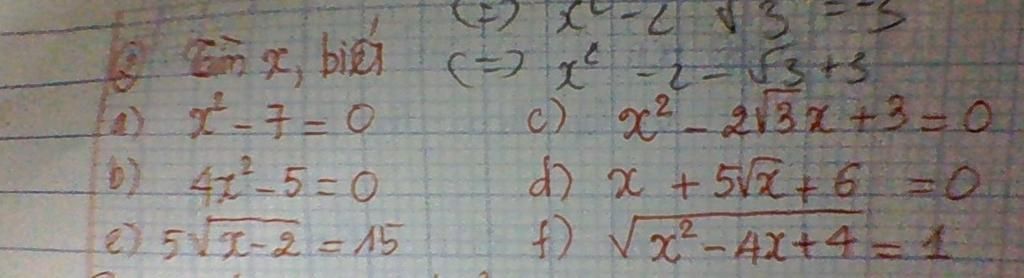 (=) x² - 2 √3 = -3
Tìm x, biết (=) x² - 2 - √3 + 3
a) x² - 7 = 0 c) x² - 2√3x + 3 = 0
b) 4x² - 5 = 0 d) x + 5√x + 6 = 0
e) 5√x-2 = 15 f) √x² - 4x + 4 = 1